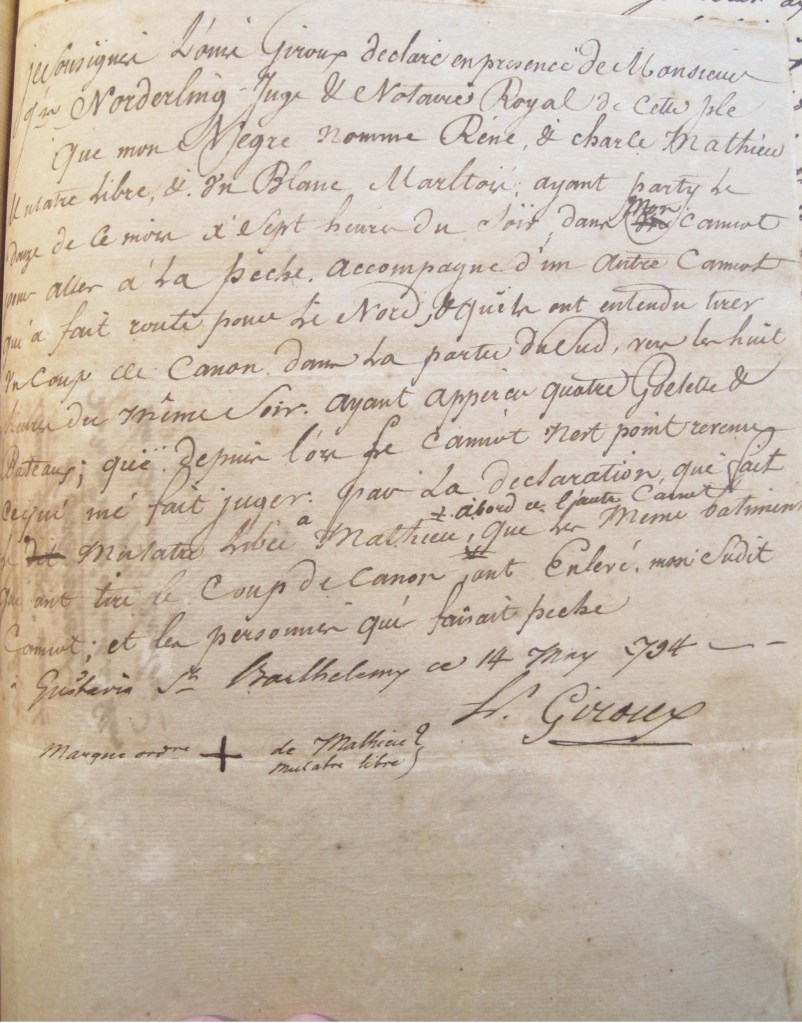 je Sousignée Loüis Giroux declare en presence De Monsieur
Norderling Juge & Notaire Royal de Cette
Que mon Negre nommé Réné, & charle Mathieu
Mulatre Libre, & Un Blanc Maltois, ayant party Le
douze de Ce mois à Sept heures du Soir, dans Mon Cannot
pour aller à La peche. accompagné d'un Autre Cannot
qu'a fait route pour Le Nord, & qu'ils ont entendu tirer
Un Coup de Canon. dans La partie du Sud, vers les huit
heures du même Soir. ayant apperçu quatre Goelette &
Bateaux; que depuis Lors Cannot n'est point revenu
Cequi mé fait juger. par La declaration, qué fait
Le Mulatre Libre Mathieu, + abord de l'autre Canot que les Meme batiment
Qui ont tiré le Coup de Canon, ont Enlevé. mon Sudit
Cannot; et les personnes qué faisait peche
Gustavia St Barthelemy ce 14 May 794
L. Giroux
Marque ordre + de Mathieu
mulatre libre